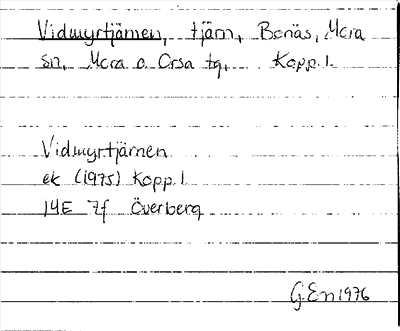 Vidmyrtjärnen, tjärn, Bonäs, Mora
sn, Mora o Orsa tg, Kopp. l.
Vidmyrtjärnen
ek (1975) Kopp. l
14E 7f Överberg
G. En 1976